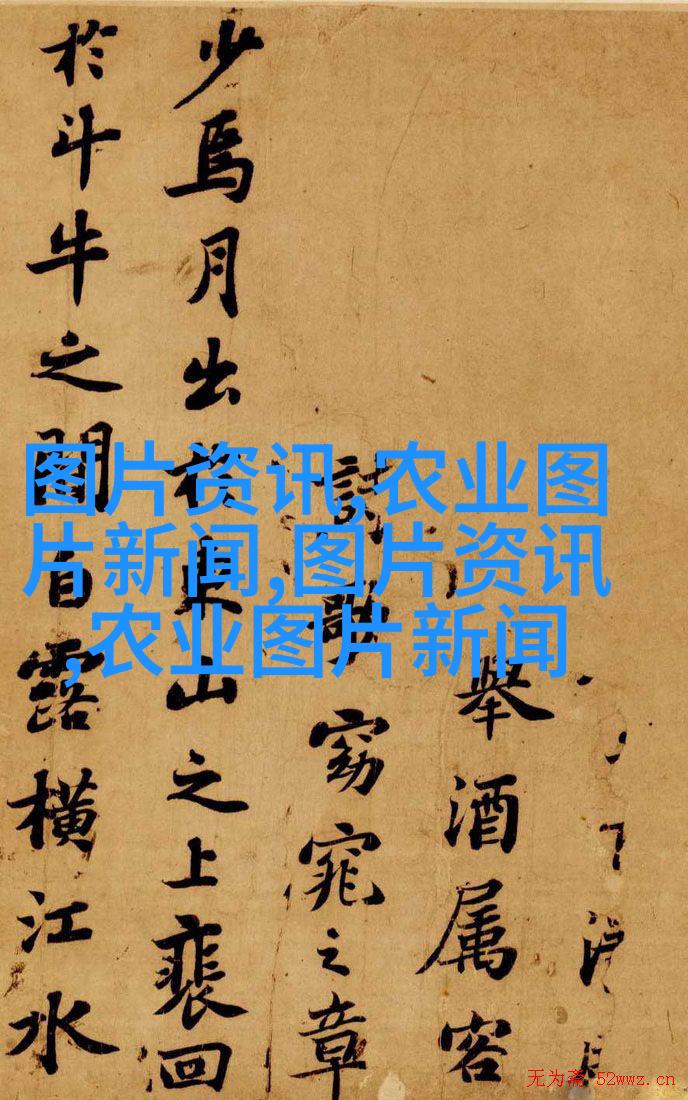 举酒属客
歌窈窕之章
少焉月出於東山之上裴回
於斗牛之間白露橫江水
图片资讯,农业图
片新闻,图片资讯
,农业图片新闻
无为斋 52wwz.cn